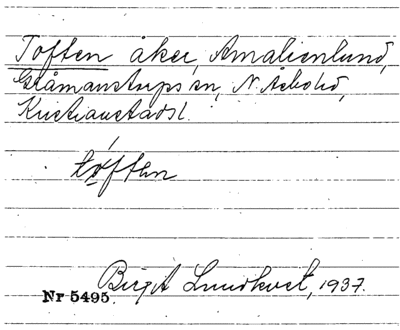 Toften åker, Amalienlund,
Gråmanstorps sn, N. Åsbo hd,
Kristianstads l.
tȯften
Birgit Lundkvist, 1937.
Nr 5495.